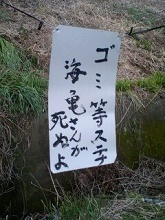 ゴミ等ステ
海亀さんが
死ぬよ